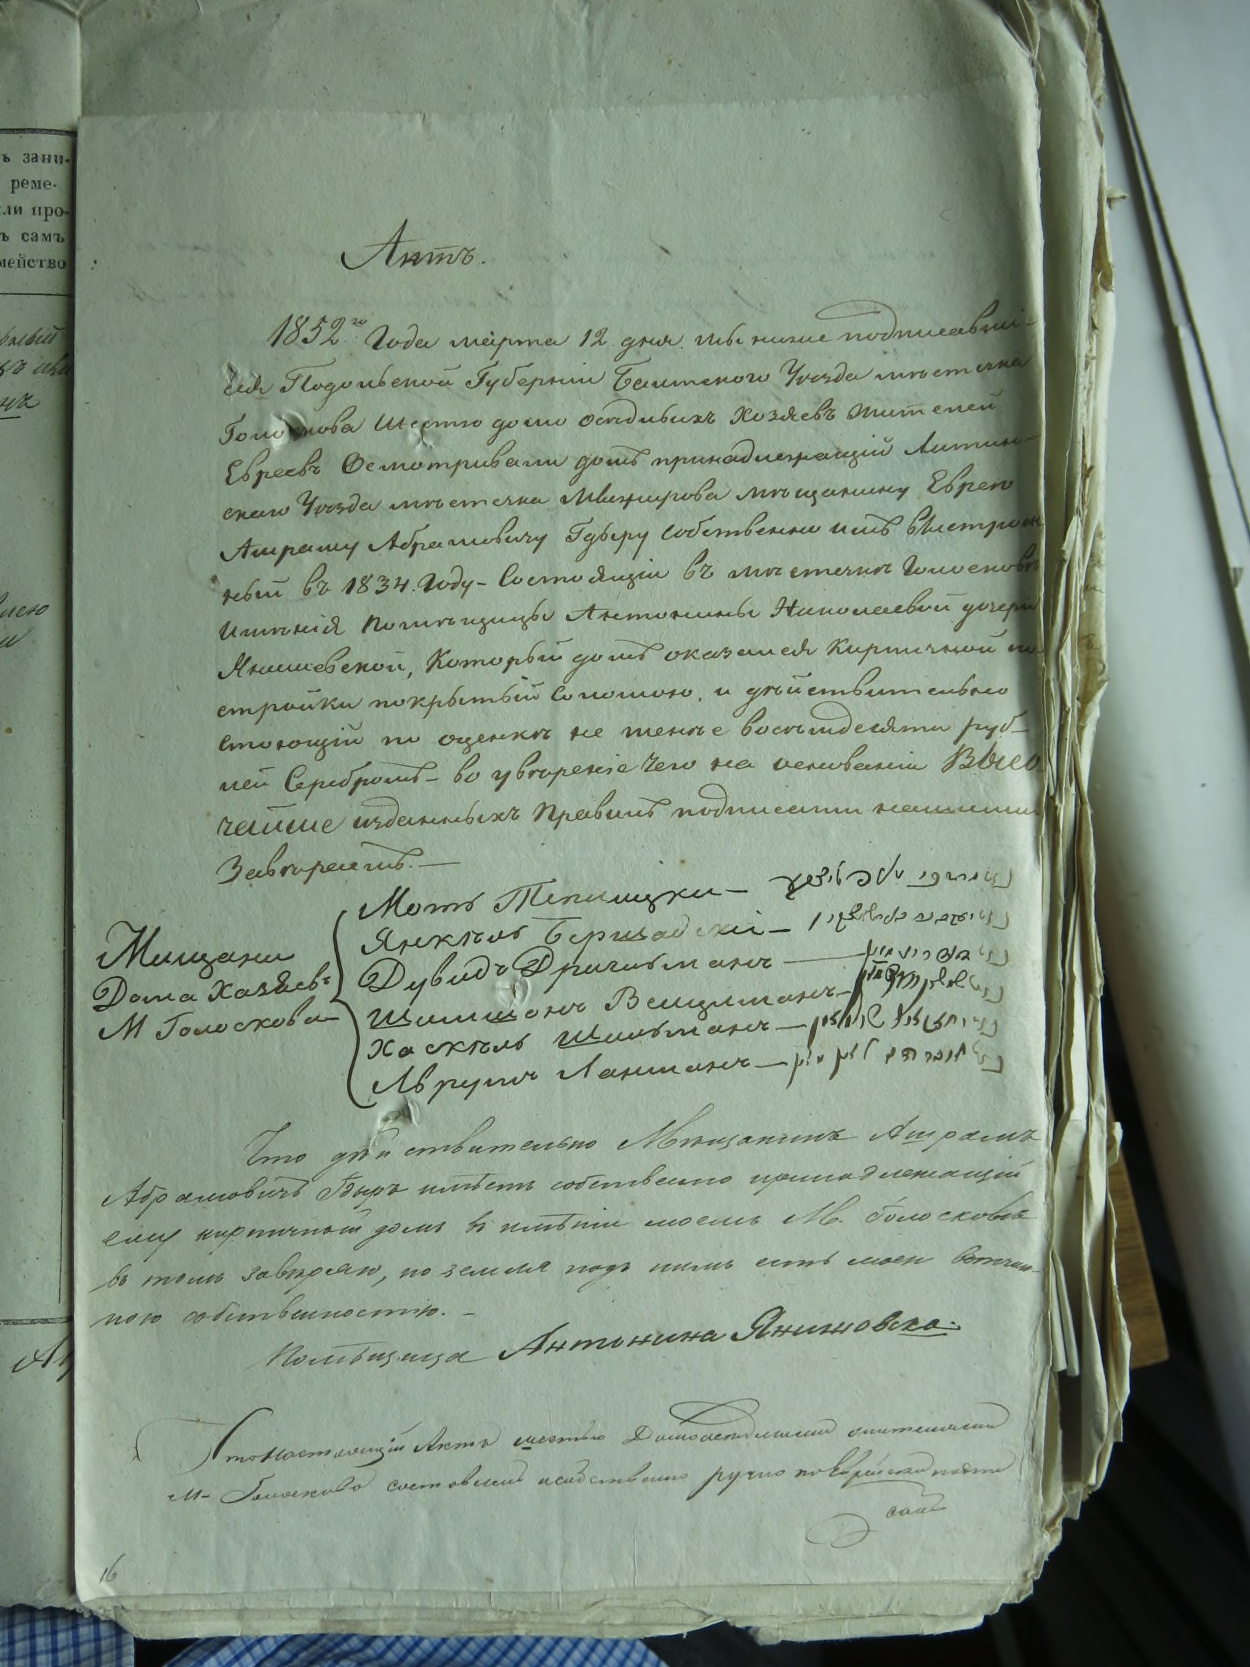 ъ зани-
реме-
ли про-
ъ самъ
мейство
Актъ.
1852го Года марта 12 дня. мы ниже подписавші-
еся Подольской Губерніи Балтского Уѣзда мѣстечка
Голоскова Шесть домо осѣдлыхъ Хозяевъ жителей
Евреевъ Осмотривали домъ принадлежащій Литин-
скаго Уѣзда мѣстечка Межирова мѣщанину Еврею
Амраму Абрамовичу Гдыру собственно имъ выстроен
ный въ 1834. Году- Состоящій въ мѣстечкѣ Голосковѣ
Имѣнія Помѣщицы Антонины Николаевой дочери
Янишевской, Который домъ оказался Кирпичной по
стройки покрытый Соломою. и дѣйствительно
стоющій по оценкѣ не менѣе восѣмдесяти руб-
лей Серебромъ- во увѣреніе чего на основаніи Высо
чайше изданныхъ Правилъ подписами нашими
Завѣряемъ.—
Мотъ Теплицки-
Янкѣль Бершадскій-
Мищани
Дувидъ Дрихъманъ
Дома Хазяевъ
Шимшонъ Вейцманъ-
М Голоскова
Хаскѣль Шильманъ-
Аврумъ Лахманъ-
Что дѣйствительно Мѣщанинъ Амрамъ
Абрамовичъ Гдыръ имѣетъ собственно принадлежащій
ему кирпичный домъ въ имѣніи моемъ М. Голосковѣ
въ томъ завѣряю, но земля подъ нимъ есть моею вотчин-
ною собственностію.-
Помѣщица Антонина Янишовска.
Что настоящій Актъ шестью Домоосѣдлыми жителями
М- Голоскова составленъ и собственно ручно по Еврейски подпи
санъ
16